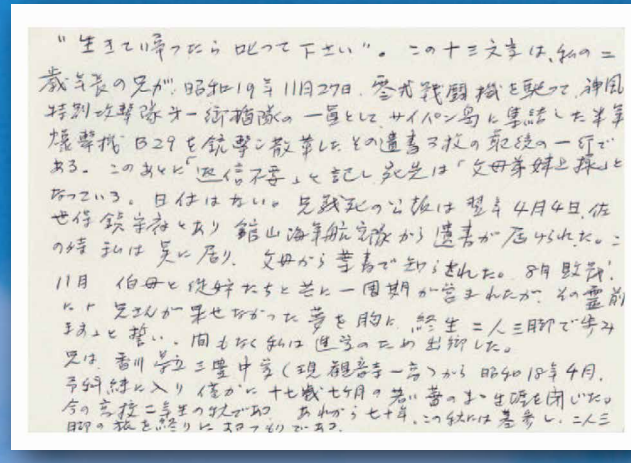 "生きて帰ったら叱って下さい"。この十三文字は、私の二
歳年長の兄が、昭和19年11月27日、零式戦闘機を馳って、神風
特別攻撃隊第一御楯隊の一員として、サイパン島に集結した米軍
爆撃機B29を銃撃し散華したその遺書3枚の最後の一行で
ある。このあとに「返信不要」と記し宛先は「父母弟妹上様」と
なっている。日付はない。兄戦死の公報は翌年4月4日、佐
世保鎮守府とあり館山海軍航空隊から遺書が届けられた。こ
の時私は呉に居り、父母から葉書で知らされた。8月敗戦、
11月 伯母と従姉たちと共に一周期が営まれたが、その霊前
に「兄さんが果せなかった夢を胸に、終生二人三脚で歩み
ます」と誓い、間もなく私は進学のため出郷した。
兄は、香川県立三豊中学(現観音寺一高)から昭和18年4月、
予科練に入り僅かに十七歳七ケ月の若い蕾のまゝ生涯を閉じた。
今の高校二年生の である。あれから七十年、この秋には墓参し、二人三
脚の旅を終りに つもりである。